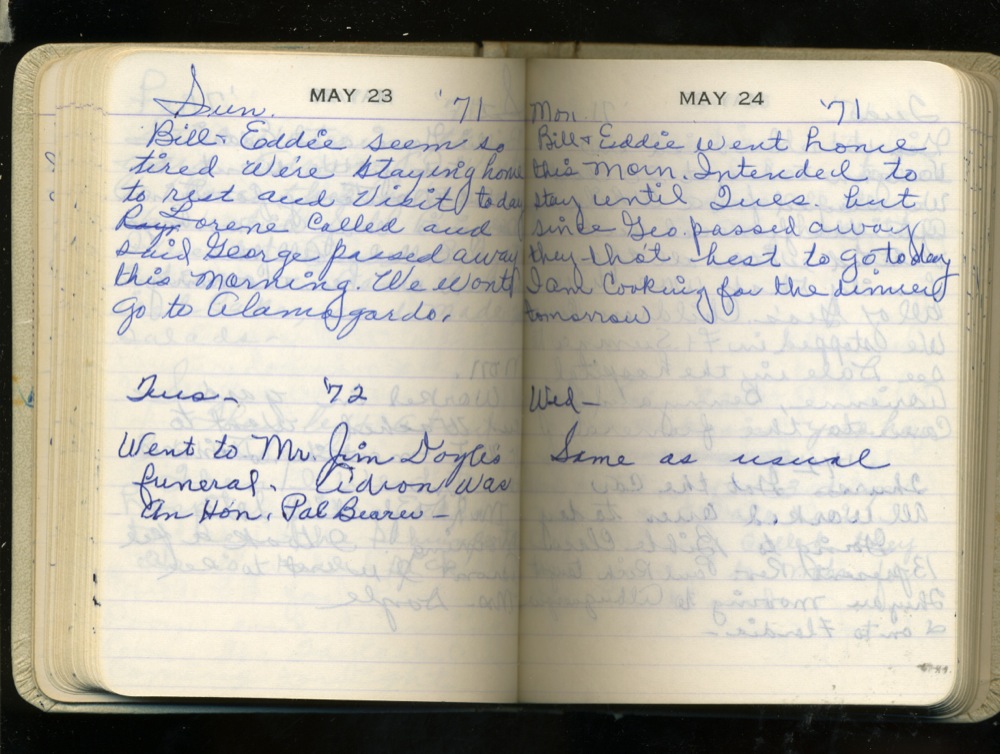 Sun. MAY 23 '71
Bill + Eddie seem so
tired we're staying home
to rest and visit today
Lorene called and
said George passed away
this morning. We wont
go to Alamogardo.
Tues — '72
Went to Mr. Jim Doyles
funeral. was
An Hon. Pal Bearer —
Mon. MAY 24 '71
Bill + Eddie went home
this Morn. Intended to
stay until Tues. but
since Geo. passed away
they tho't best to go today
I am cooking for the dinner
tomorrow
Wed —
Same as usual